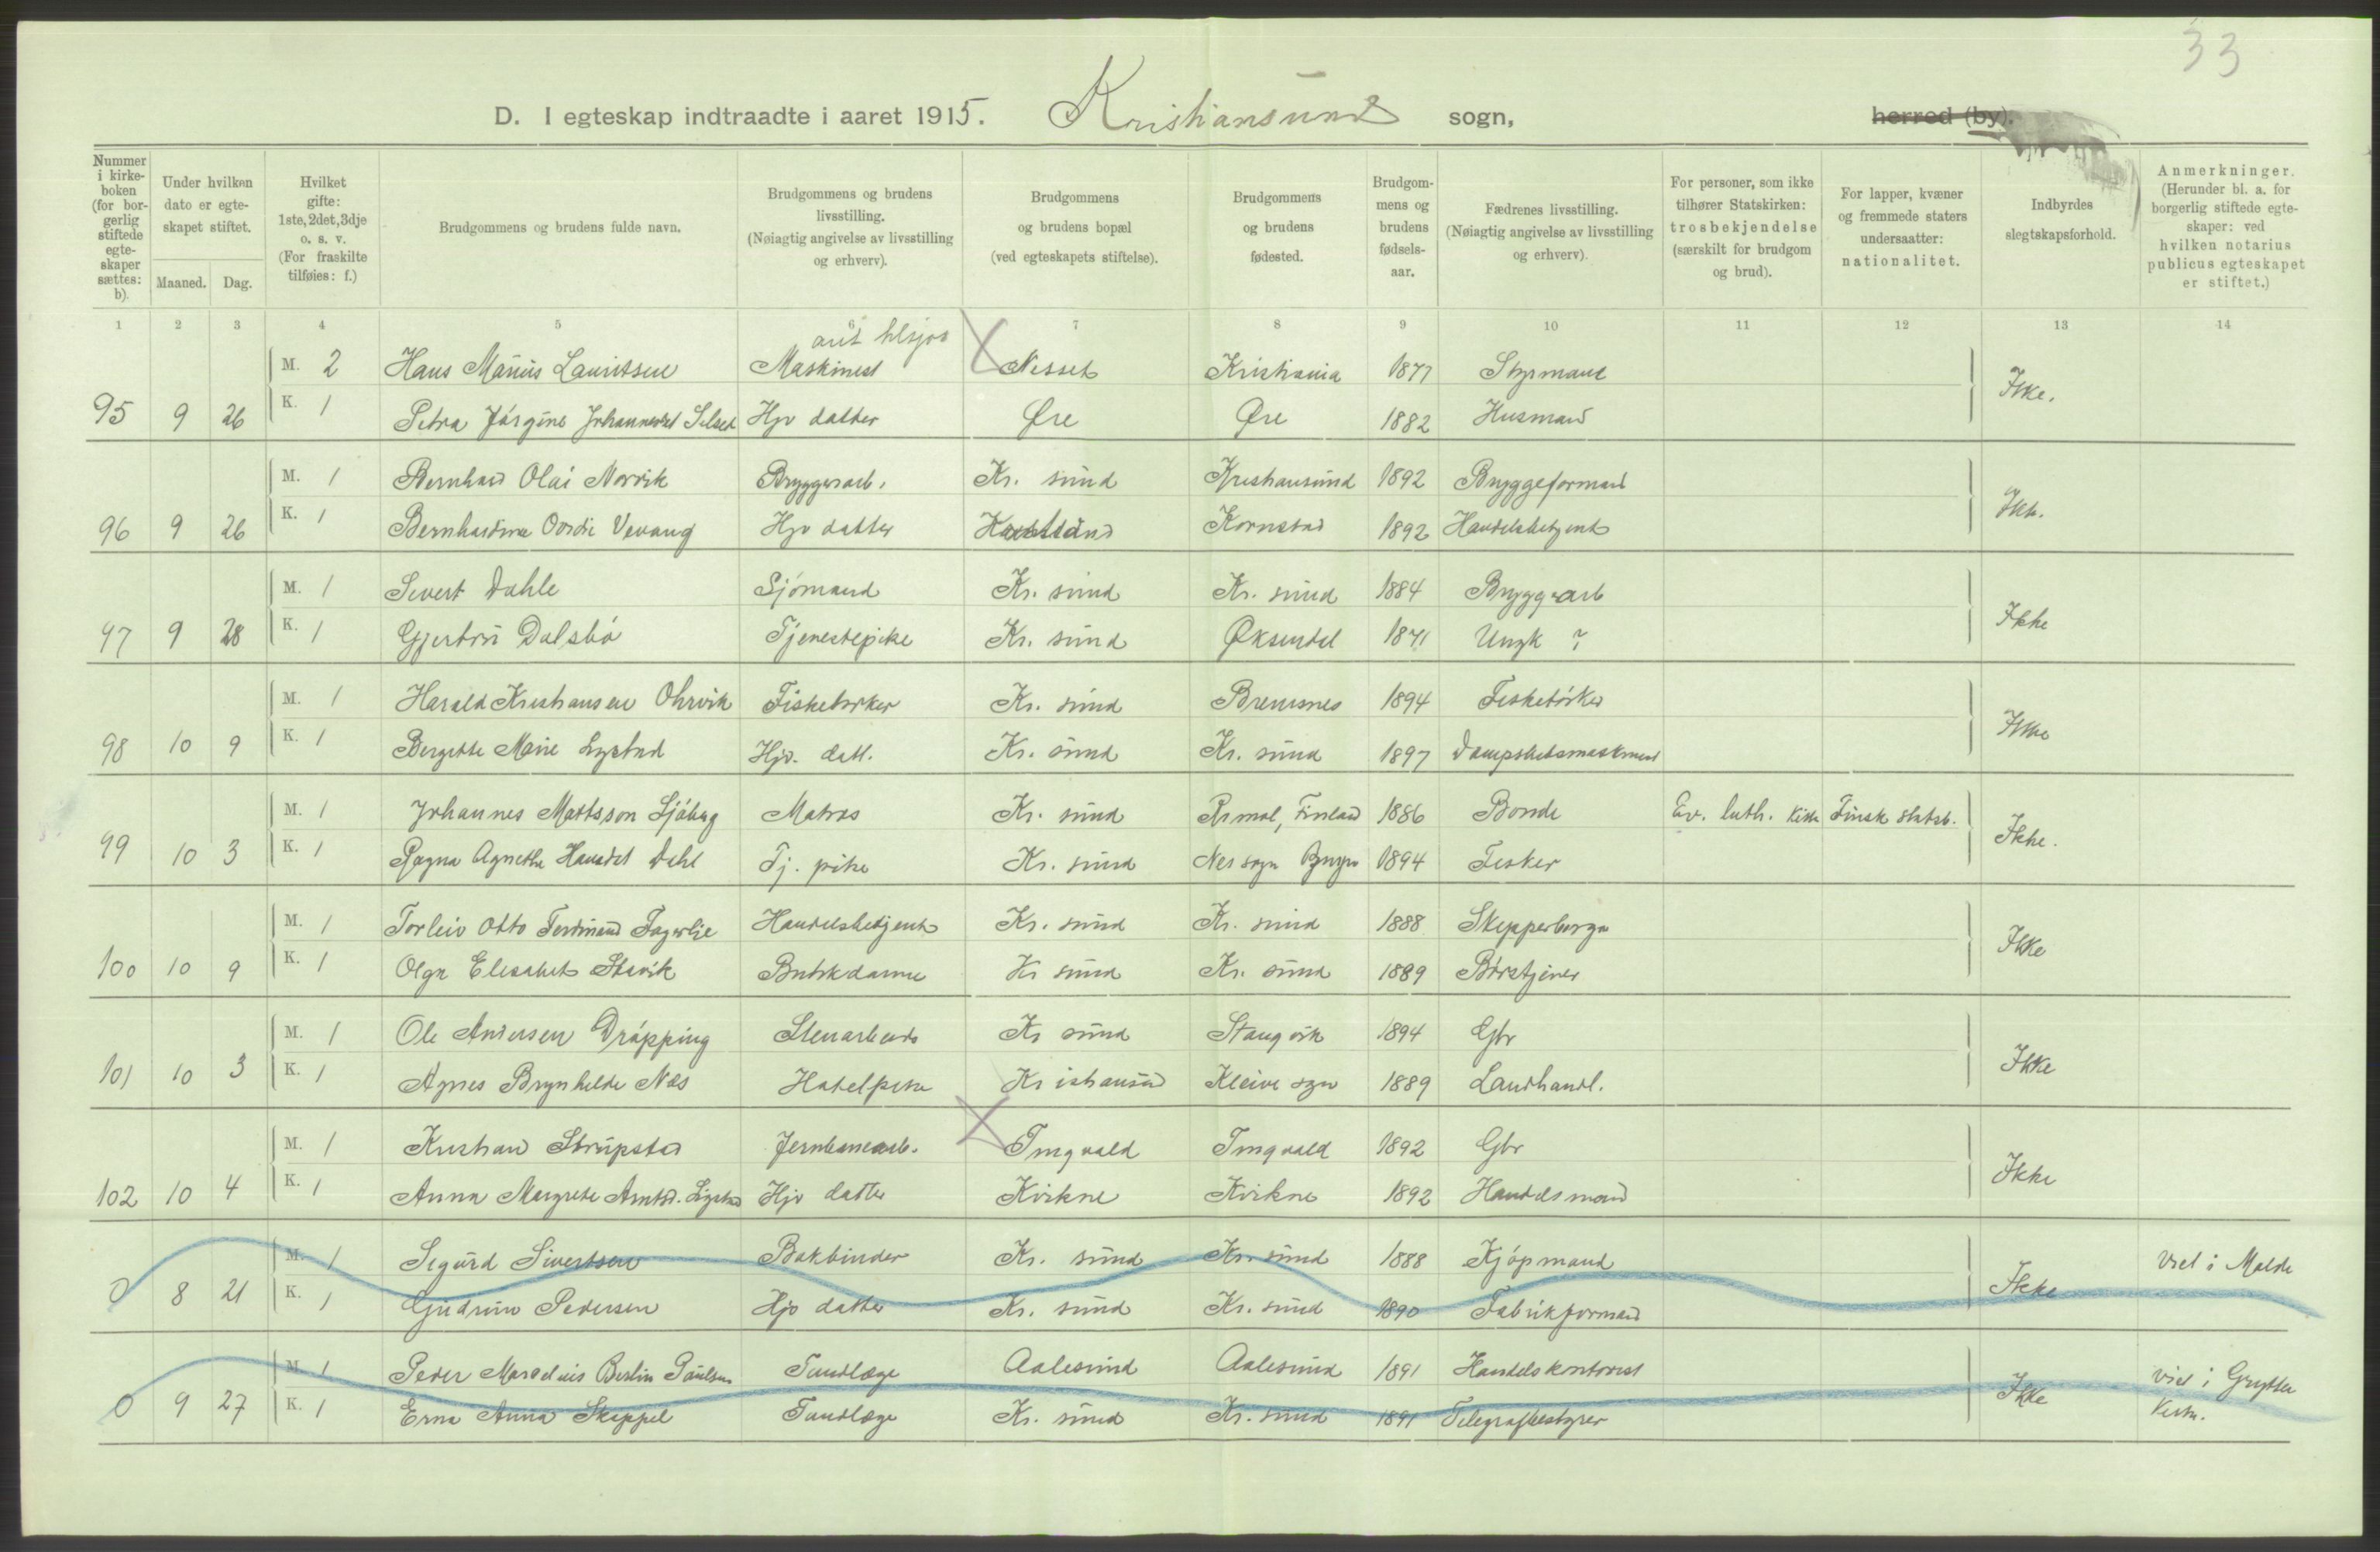 33
D. I egteskap indtraadte i aaret 1915. Kristiansund sogn, herred (by).
Nummer i kirkeboken (for borgerlig stiftede egteskaper sættes: b).
Under hvilken dato er egteskapet stiftet.
Maaned. Dag.
Hvilket gifte: 1ste, 2det, 3dje o. s. v. (For fraskilte tilføies: f.)
Brudgommens og brudens fulde navn.
Brudgommens og brudens livsstilling. (Nøiagtig angivelse av livsstilling og erhverv).
Brudgommens og brudens bopæl (ved egteskapets stiftelse).
Brudgommens og brudens fødested.
Brudgommens og brudens fødselsaar.
Fædrenes livsstilling. (Nøiagtig angivelse av livsstilling og erhverv).
For personer, som ikke tilhører Statskirken: trosbekjendelse (særskilt for brudgom og brud).
For lapper, kvæner og fremmede staters undersaatter: nationalitet.
Indbyrdes slegtskapsforhold.
Anmerkninger. (Herunder bl. a. for borgerlig stiftede egteskaper: ved hvilken notarius publicus egteskapet er stiftet.)
1 2 3 4 5 6 7 8 9 10 11 12 13 14
M. 2 Hans Marius Lauritsen Maskinist Nesset Kristiania 1877 Styrmand
95 9 26 K. 1 Petra Jørgine Johannesdt Selset Hjv datter Øre Øre 1882 Husmand Ikke.
M. 1 Bernhard Olai Norvik Bryggearb. Kr. sund Kristiansund 1892 Bryggeformand
96 9 26 K. 1 Bernhardine Oordie Vevang Hjv datter Kornstad 1892 Handelsbetjent Ikke.
M. 1 Sivert Dahle Sjømand Kr. sund Kr. sund 1884 Bryggearb
97 9 28 K. 1 Gjertru Dalsbø Tjenestepike Kr. sund Øksendal 1871 Ungk ? Ikke
M. 1 Harald Kristiansen Ohrvik Fisketørker Kr. sund Bremsnes 1894 Fisketørker
98 10 9 K. 1 Bergitte Marie Lystad Hjv. datt. Kr. sund Kr. sund 1897 Dampskibsmaskinist Ikke
M. 1 Johannes Mattsson Sjøberg Matros Kr. sund Finland 1886 Bonde Ev. luth. kirke Finsk statsb.
99 10 3 K. 1 Ragna Agnethe Hansdt Dahl Tj. pike Kr. sund Nes sogn 1894 Fisker Ikke.
M. 1 Torleiv Otto Ferdinand Fagerlie Handelsbetjent Kr. sund Kr. sund 1888 Skipperborger
100 10 9 K. 1 Olga Elisabet Stavik Butikdame Kr sund Kr. sund 1889 Børstjener Ikke
M. 1 Ole Andersen Drøpping Stenarbeider Kr sund Stangvik 1894 Gbr
101 10 3 K. 1 Agnes Brynhilde Næs Hotelpike Kristiansund Kleive sogn 1889 Landhandl. Ikke
M. 1 Kristian Strupstad Jernbanearb. Tingvold Tingvold 1892 Gbr
102 10 4 K. 1 Anna Margrete Arntsd. Hjv datter Kvikne Kvikne 1892 Handelsmand Ikke
M. 1 Sigurd Sivertsen Bokbinder Kr. sund Kr. sund 1888 Kjøpmand Viet i Molde
0 8 21 K. 1 Gudrun Pedersen Hjv datter Kr. sund Kr. sund 1890 Fabrikformand Ikke
M. 1 Peder Marselius Berlin Paulsen Tandlæge Aalesund Aalesund 1891 Handelskontorist Viet i Grytten
0 9 27 K. 1 Erna Anna Skeppel Tandlæge Kr. sund Kr. sund 1891 Telegrafbestyrer Ikke Kirke.